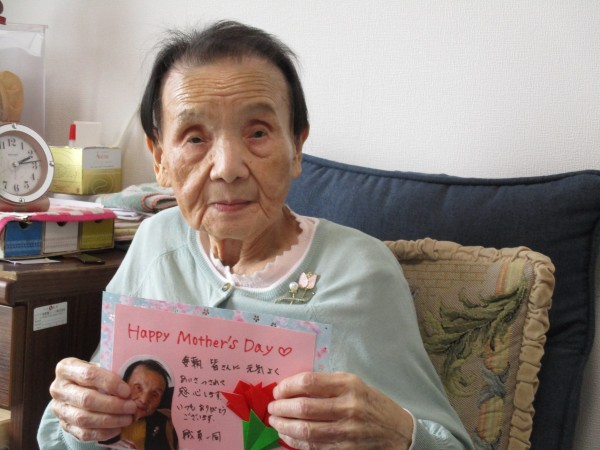 Happy Mother's Day
毎朝 皆さんに 元気よく
あいさつされて
感心します
いつもありがとう
ございます。
職員一同